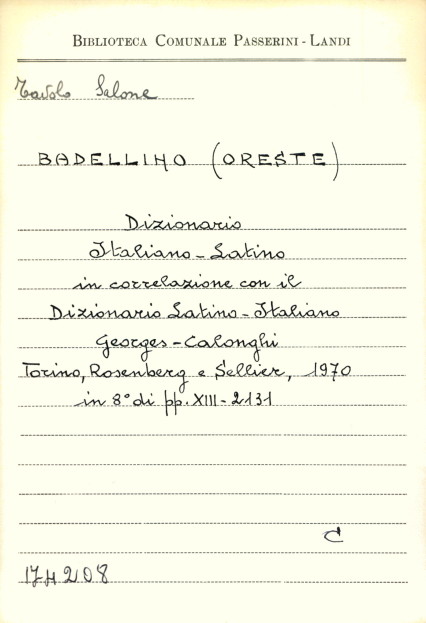 BIBLIOTECA COMUNALE PASSERINI - LANDI
Tavolo Salone
BADELLINO (ORESTE)
Dizionario
Italiano - Latino
in correlazione con il
Dizionario Latino - Italiano
Georges - Calonghi
Torino, Rosenberg e Sellier, 1970
in 8° di pp. XIII - 2131
C
174208